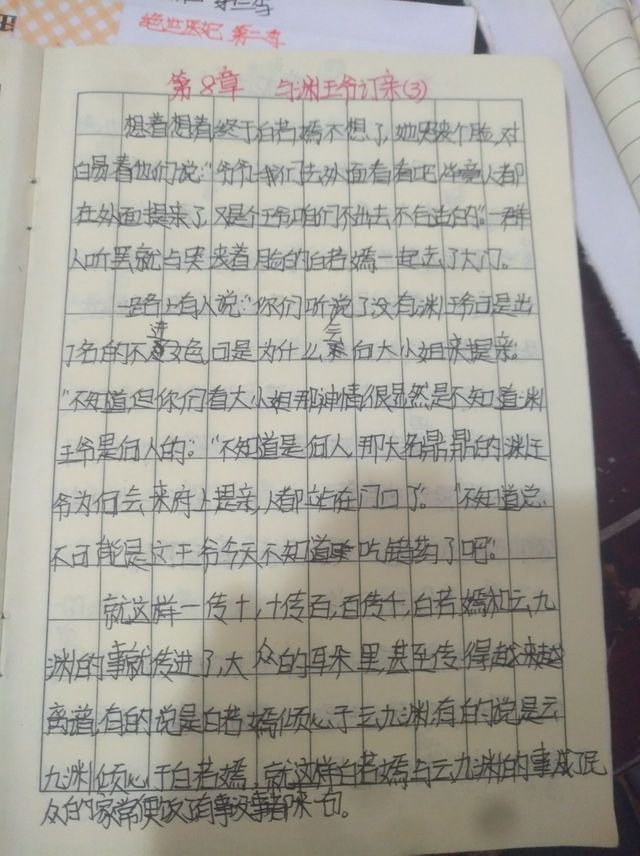 绝世医妃 第二季
第8章 与渊王爷订亲(3)
想着想着终于白若嫣不想了,她哭丧个脸,对
白易着他们说:“爷爷,我们去外面看看吧,毕竟人都
在外面提亲了,又是个王爷,咱们不出去,不合适的。”一群
人听罢,就与哭丧着脸的白若嫣一起去了大门。
一路上有人说:“你们听说了没有,渊王爷可是出
了名的不进女色,可是为什么会向大小姐来提亲。”
“不知道,但你们看大小姐那神情,很显然是不知道渊
王爷是何人的。”“不知道是何人,那大名鼎鼎的渊王
爷为何会来府上提亲,人都站在门口了。”“不知道,总
不可能是这王爷今天不知道吃错药了吧。”
就这样一传十,十传百,百传千,白若嫣和云九
渊的事就传进了,大众的耳朵里,甚至传得越来越
离谱,有的说是白若嫣倾心于云九渊,有的说是云
九渊倾心于白若嫣,就这样白若嫣与云九渊的事成了民
众的家常便饭了有事没事都来一句。